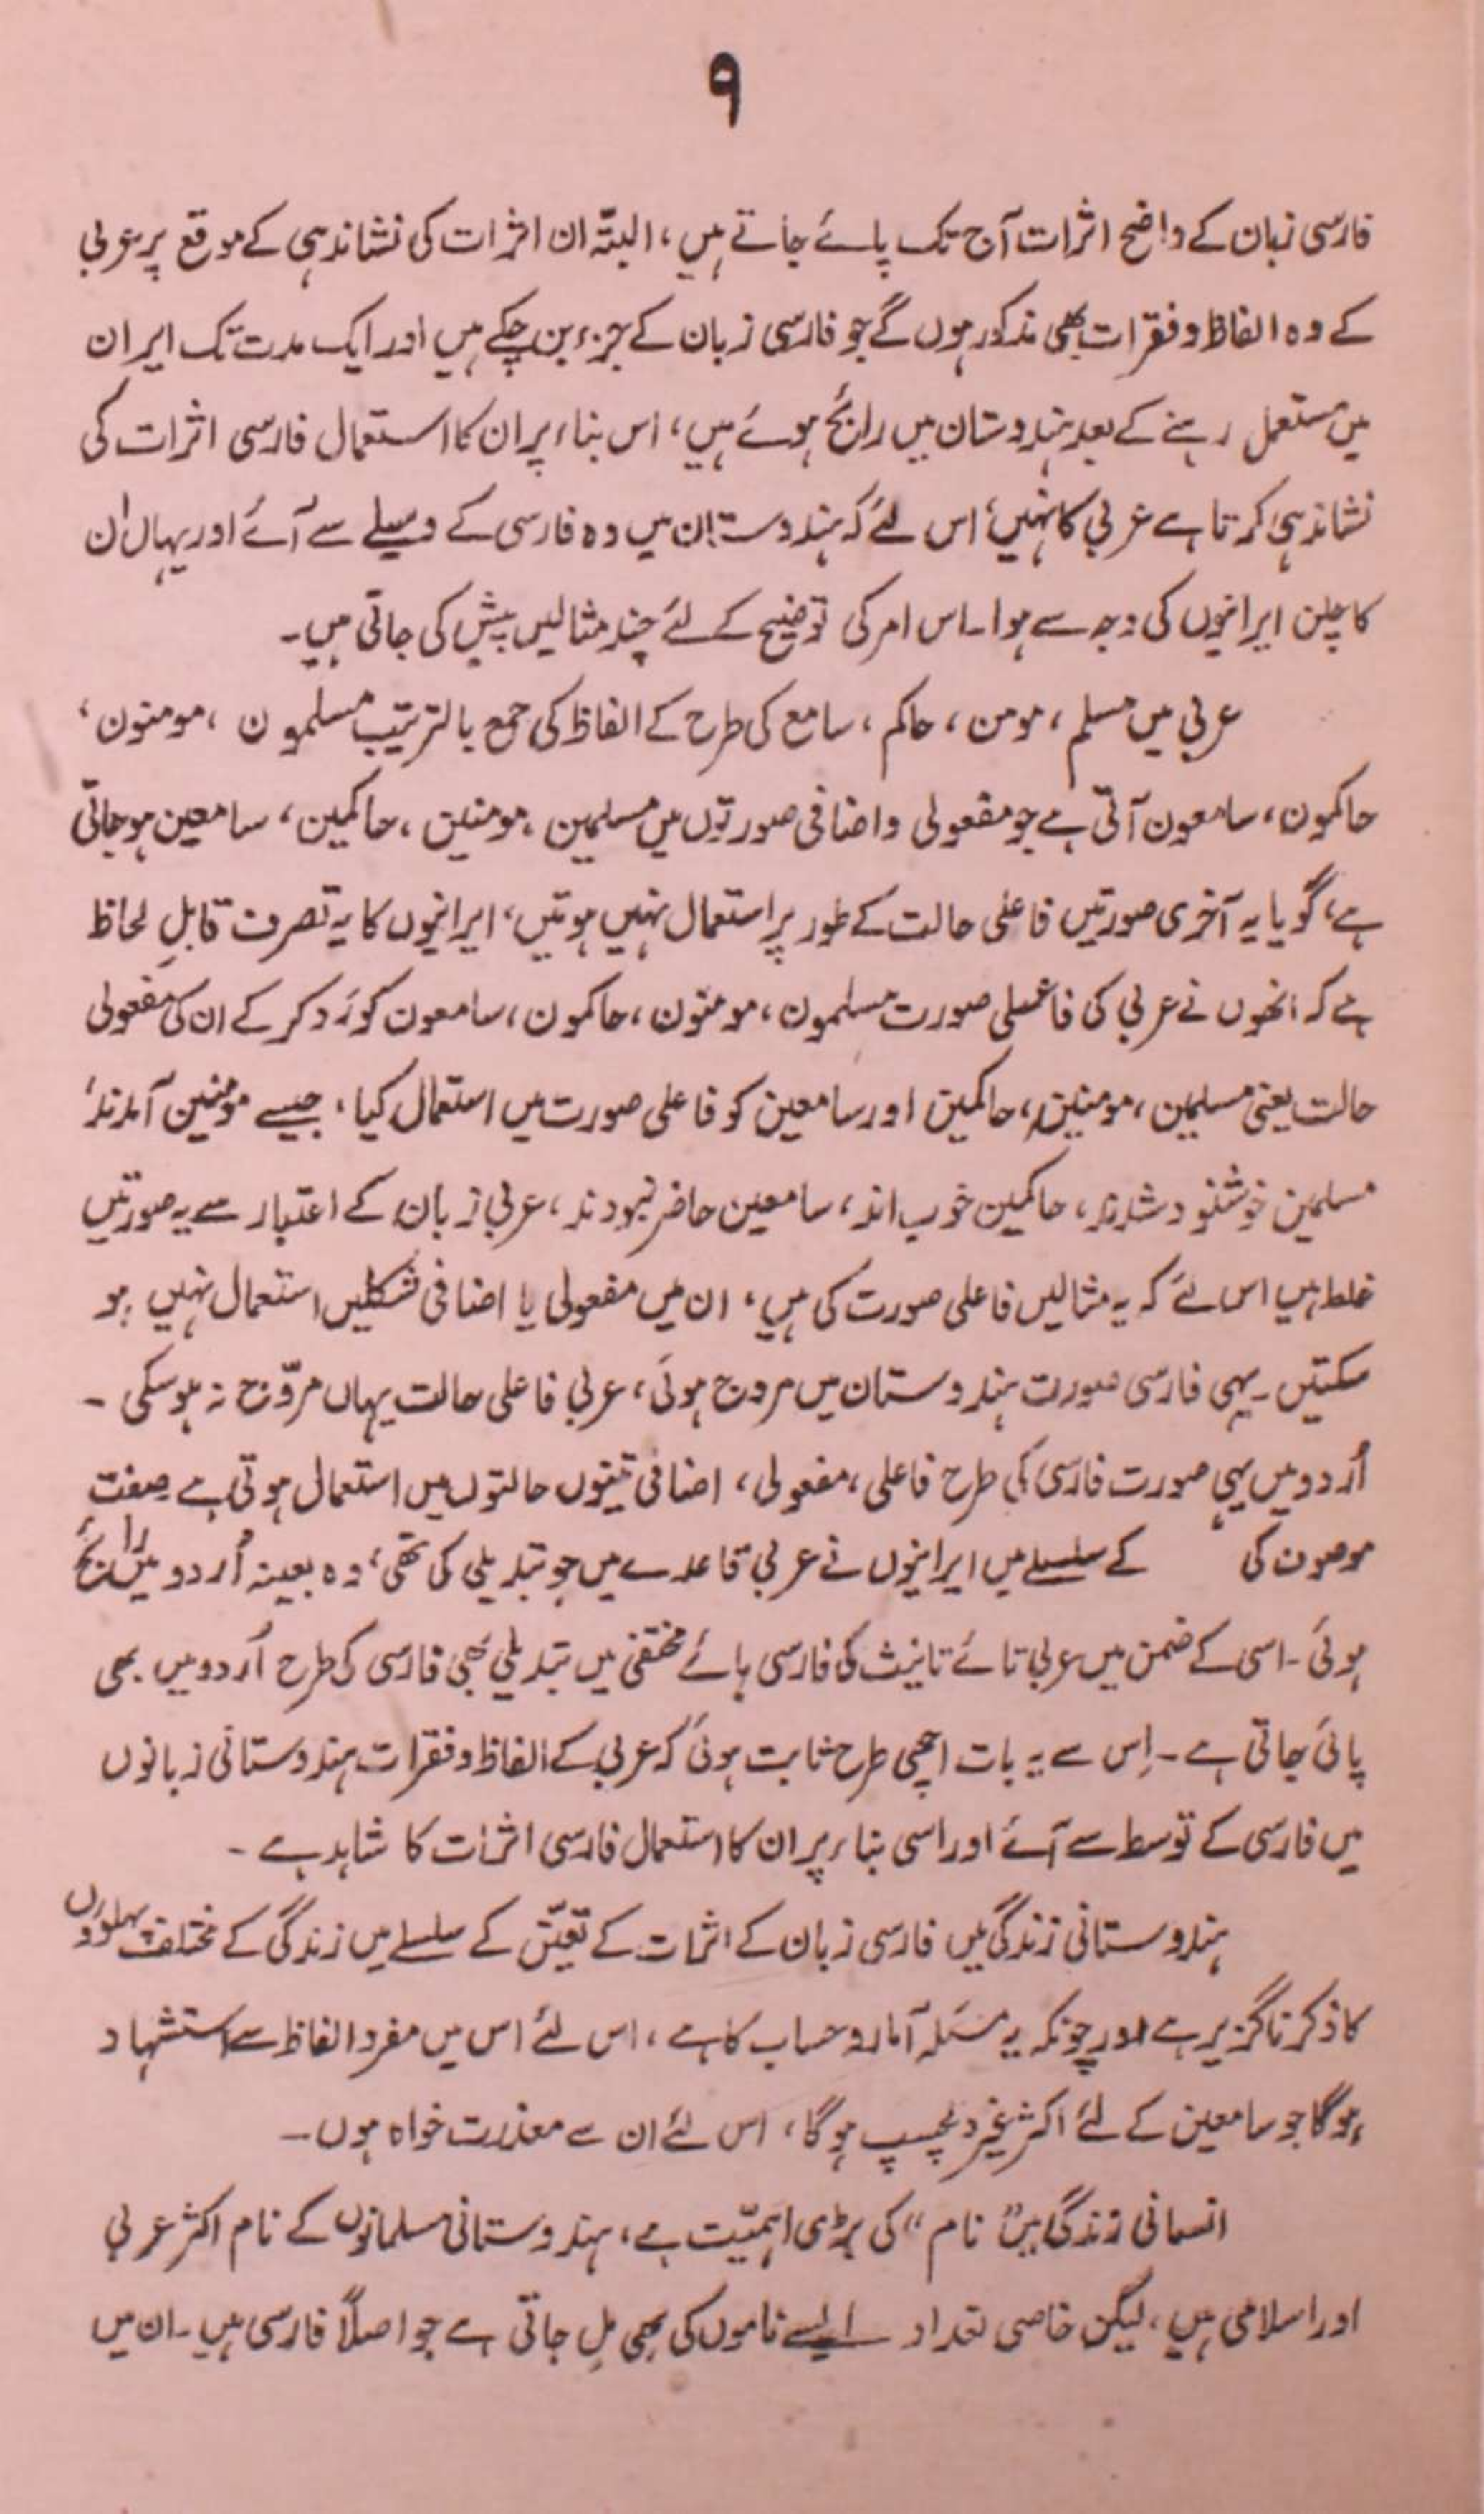 ۹
فارسی زبان کے واضح اثرات آج تک پائے جاتے ہیں، البتّہ ان اثرات کی نشاندہی کے موقع پر عربی
کے وہ الفاظ و فقرات بھی مذکور ہوں گے جو فارسی زبان کے جزء بن چکے ہیں اور ایک مدت تک ایران
میں مستعمل رہنے کے بعد ہندوستان میں رائج ہوئے ہیں، اس بناء پر ان کا استعمال فارسی اثرات کی
نشاندہی کرتا ہے عربی کا نہیں، اس لئے کہ ہندوستان میں وہ فارسی کے وسیلے سے آئے اور یہاں ان
کا چلن ایرانیوں کی وجہ سے ہوا۔ اس امر کی توضیح کے لئے چند مثالیں پیش کی جاتی ہیں۔
عربی میں مسلم، مومن، حاکم، سامع کی طرح کے الفاظ کی جمع بالترتیب مسلمون، مومنون،
حاکمون، سامعون آتی ہے جو مفعولی و اضافی صورتوں میں مسلمین، مومنین، حاکمین، سامعین ہو جاتی
ہے، گویا یہ آخری صورتیں فاعلی حالت کے طور پر استعمال نہیں ہوتیں، ایرانیوں کا یہ تصرف قابلِ لحاظ
ہے کہ انھوں نے عربی کی فاعلی صورت مسلمون، مومنون، حاکمون، سامعون کو رَد کر کے ان کی مفعولی
حالت یعنی مسلمین، مومنین، حاکمین اور سامعین کو فاعلی صورت میں استعمال کیا، جیسے مومنین آمدند،
مسلمین خوشنود شدند، حاکمین خوب اند، سامعین حاضر نبودند، عربی زبان کے اعتبار سے یہ صورتیں
غلط ہیں اس لئے کہ یہ مثالیں فاعلی صورت کی ہیں، ان میں مفعولی یا اضافی شکلیں استعمال نہیں ہو
سکتیں۔ یہی فارسی صورت ہندوستان میں مروج ہوئی، عربی فاعلی حالت یہاں مروّج نہ ہو سکی۔
اُردو میں یہی صورت فارسی کی طرح فاعلی، مفعولی، اضافی تینوں حالتوں میں استعمال ہوتی ہے۔ صفت
موصوف کی کے سلسلے میں ایرانیوں نے عربی قاعدے میں جو تبدیلی کی تھی، وہ بعینہ اُردو میں رائج
ہوئی۔ اسی کے ضمن میں عربی تائے تانیث کی فارسی ہائے مختفی میں تبدیلی بھی فارسی کی طرح اُردو میں بھی
پائی جاتی ہے۔ اِس سے یہ بات اچھی طرح ثابت ہوئی کہ عربی کے الفاظ و فقرات ہندوستانی زبانوں
میں فارسی کے توسط سے آئے اور اسی بناء پر ان کا استعمال فارسی اثرات کا شاہد ہے۔
ہندوستانی زندگی میں فارسی زبان کے اثرات کے تعیّن کے سلسلے میں زندگی کے مختلف پہلوؤں
کا ذکر ناگزیر ہے اور چونکہ یہ مسئلہ آمار و حساب کا ہے، اس لئے اس میں مفرد الفاظ سے استشہاد
ہوگا جو سامعین کے لئے اکثر غیر دلچسپ ہوگا، اس لئے ان سے معذرت خواہ ہوں۔
انسانی زندگی میں "نام" کی بڑی اہمیّت ہے، ہندوستانی مسلمانوں کے نام اکثر عربی
اور اسلامی ہیں، لیکن خاصی تعداد ایسے ناموں کی بھی مل جاتی ہے جو اصلاً فارسی ہیں۔ ان میں